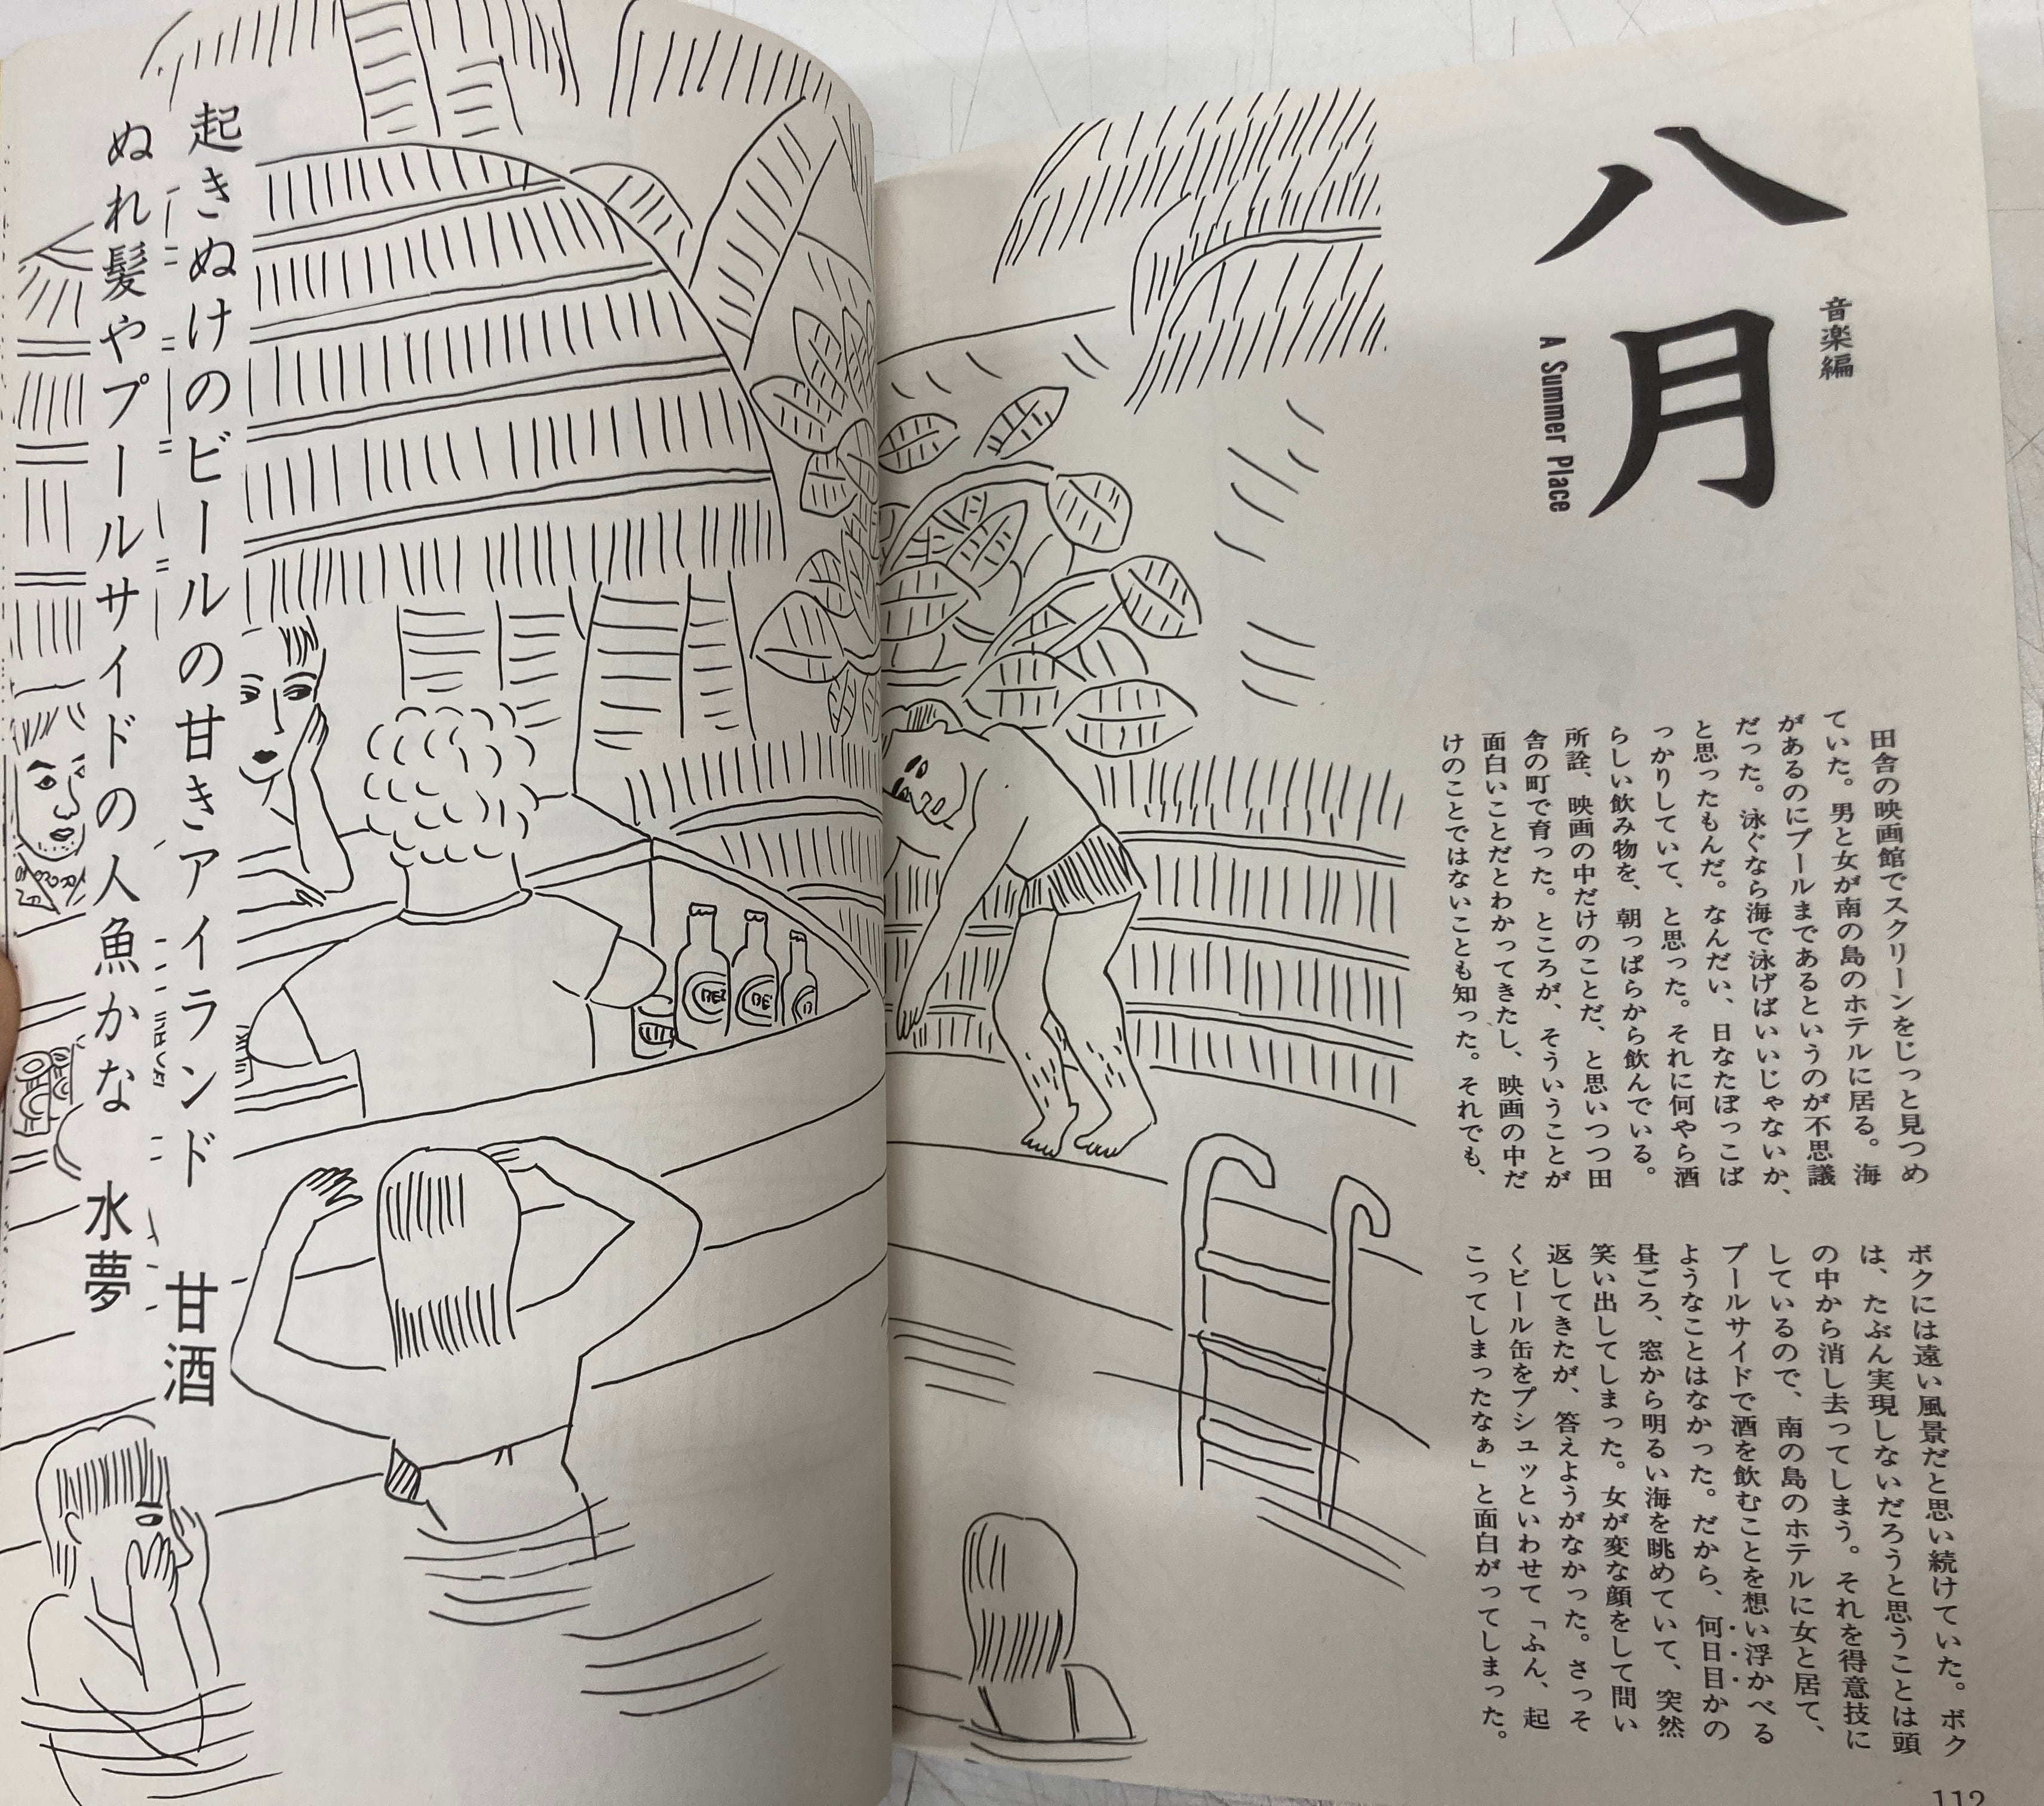 八月
音楽編
A Summer Place
田舎の映画館でスクリーンをじっと見つめ
ていた。男と女が南の島のホテルに居る。海
があるのにプールまであるというのが不思議
だった。泳ぐなら海で泳げばいいじゃないか、
と思ったもんだ。なんだい、日なたぼっこば
っかりしていて、と思った。それに何やら酒
らしい飲み物を、朝っぱらから飲んでいる。
所詮、映画の中だけのことだ、と思いつつ田
舎の町で育った。ところが、そういうことが
面白いことだとわかってきたし、映画の中だ
けのことではないことも知った。それでも、
ボクには遠い風景だと思い続けていた。ボク
は、たぶん実現しないだろうと思うことは頭
の中から消し去ってしまう。それを得意技に
しているので、南の島のホテルに女と居て、
プールサイドで酒を飲むことを想い浮かべる
ようなことはなかった。だから、何日目かの
昼ごろ、窓から明るい海を眺めていて、突然
笑い出してしまった。女が変な顔をして問い
返してきたが、答えようがなかった。さっそ
くビール缶をプシュッといわせて「ふん、起
こってしまったなぁ」と面白がってしまった。
112
起きぬけのビールの甘きアイランド 甘酒
ぬれ髪やプールサイドの人魚かな 水夢